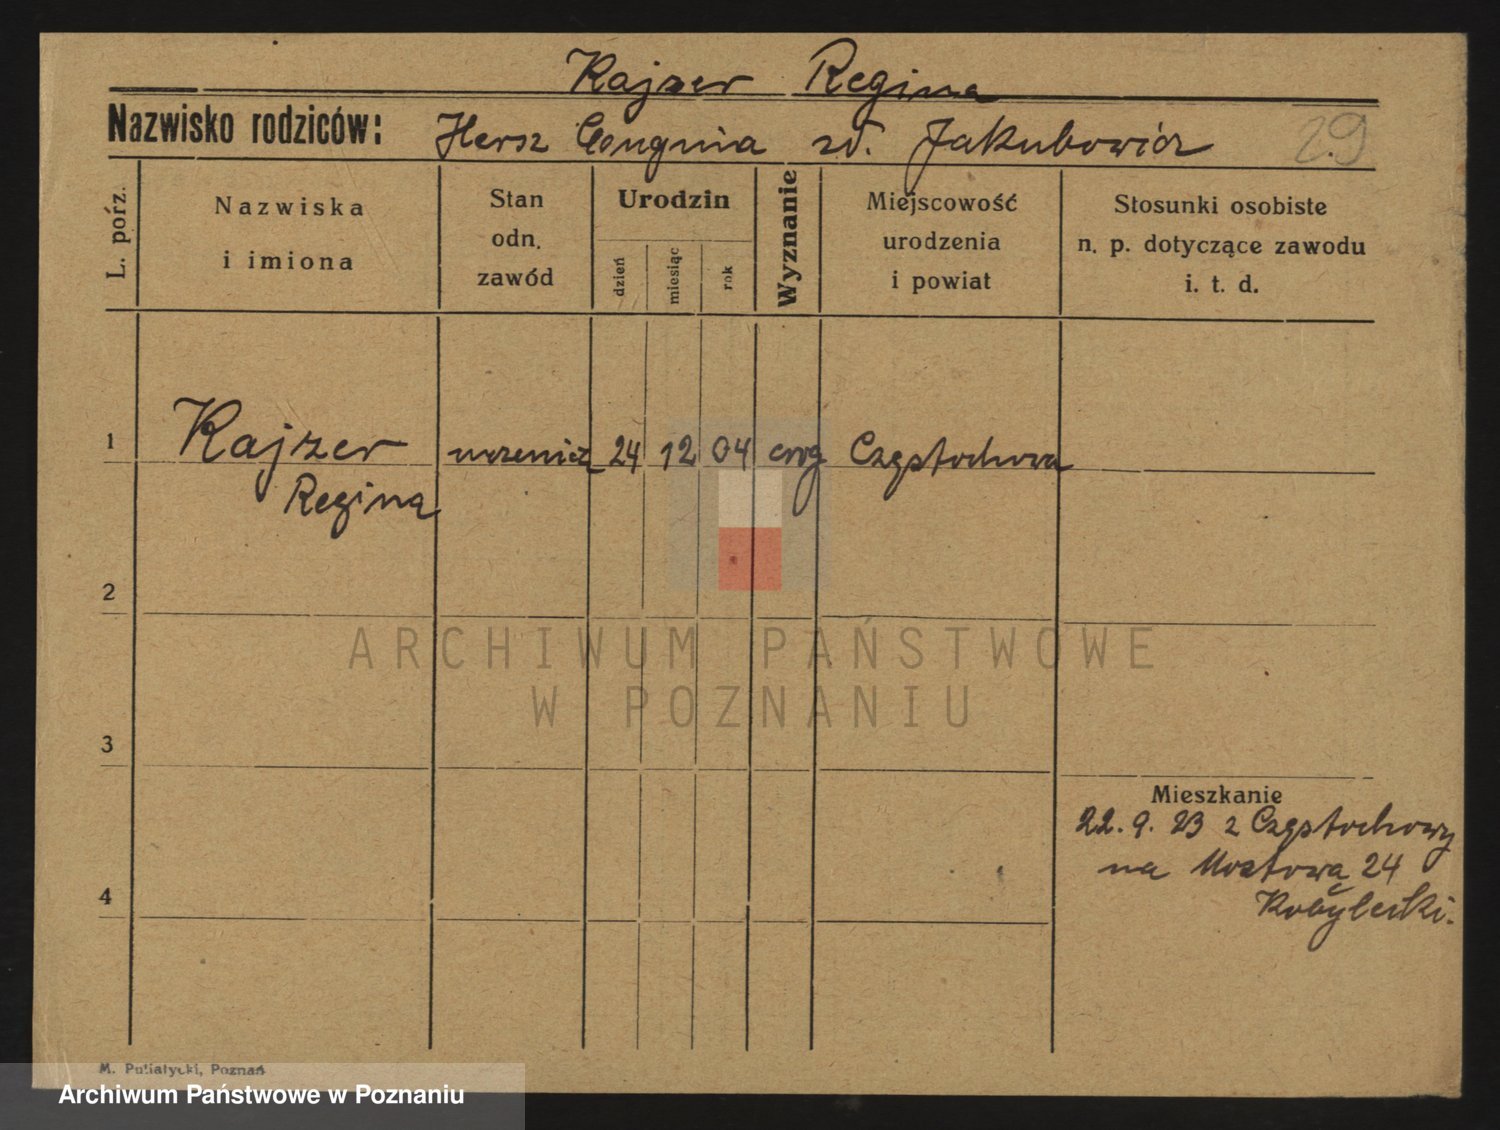 Kajzer Regina
Nazwisko rodziców: Hersz zd. Jakubowicz 29
L. pórz.
Nazwiska i imiona
Stan odn. zawód
Urodzin
dzień
miesiąc
rok
Wyznanie
Miejscowość urodzenia i powiat
Stosunki osobiste n. p. dotyczące zawodu i. t. d.
1 Kajzer 24 12 04 Częstochowa
Regina
2
3
4
Mieszkanie
22. 9. 23 z Częstochowy
na Mostowa 24
ARCHIWUM PAŃSTWOWE
W POZNANIU
M. Putiatycki, Poznań
Archiwum Państwowe w Poznaniu